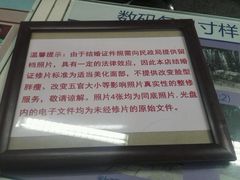 数码
寸样
温馨提示：由于结婚证件照需向民政局提供留档照片，具有一定的法律效应，因此本店结婚证修片标准为适当美化面部，不提供改变脸型胖瘦，改变五官大小等影响照片真实性的整修服务，敬请谅解。照片4张均为同底照片，光盘内的电子文件均为未经修片的原始文件。